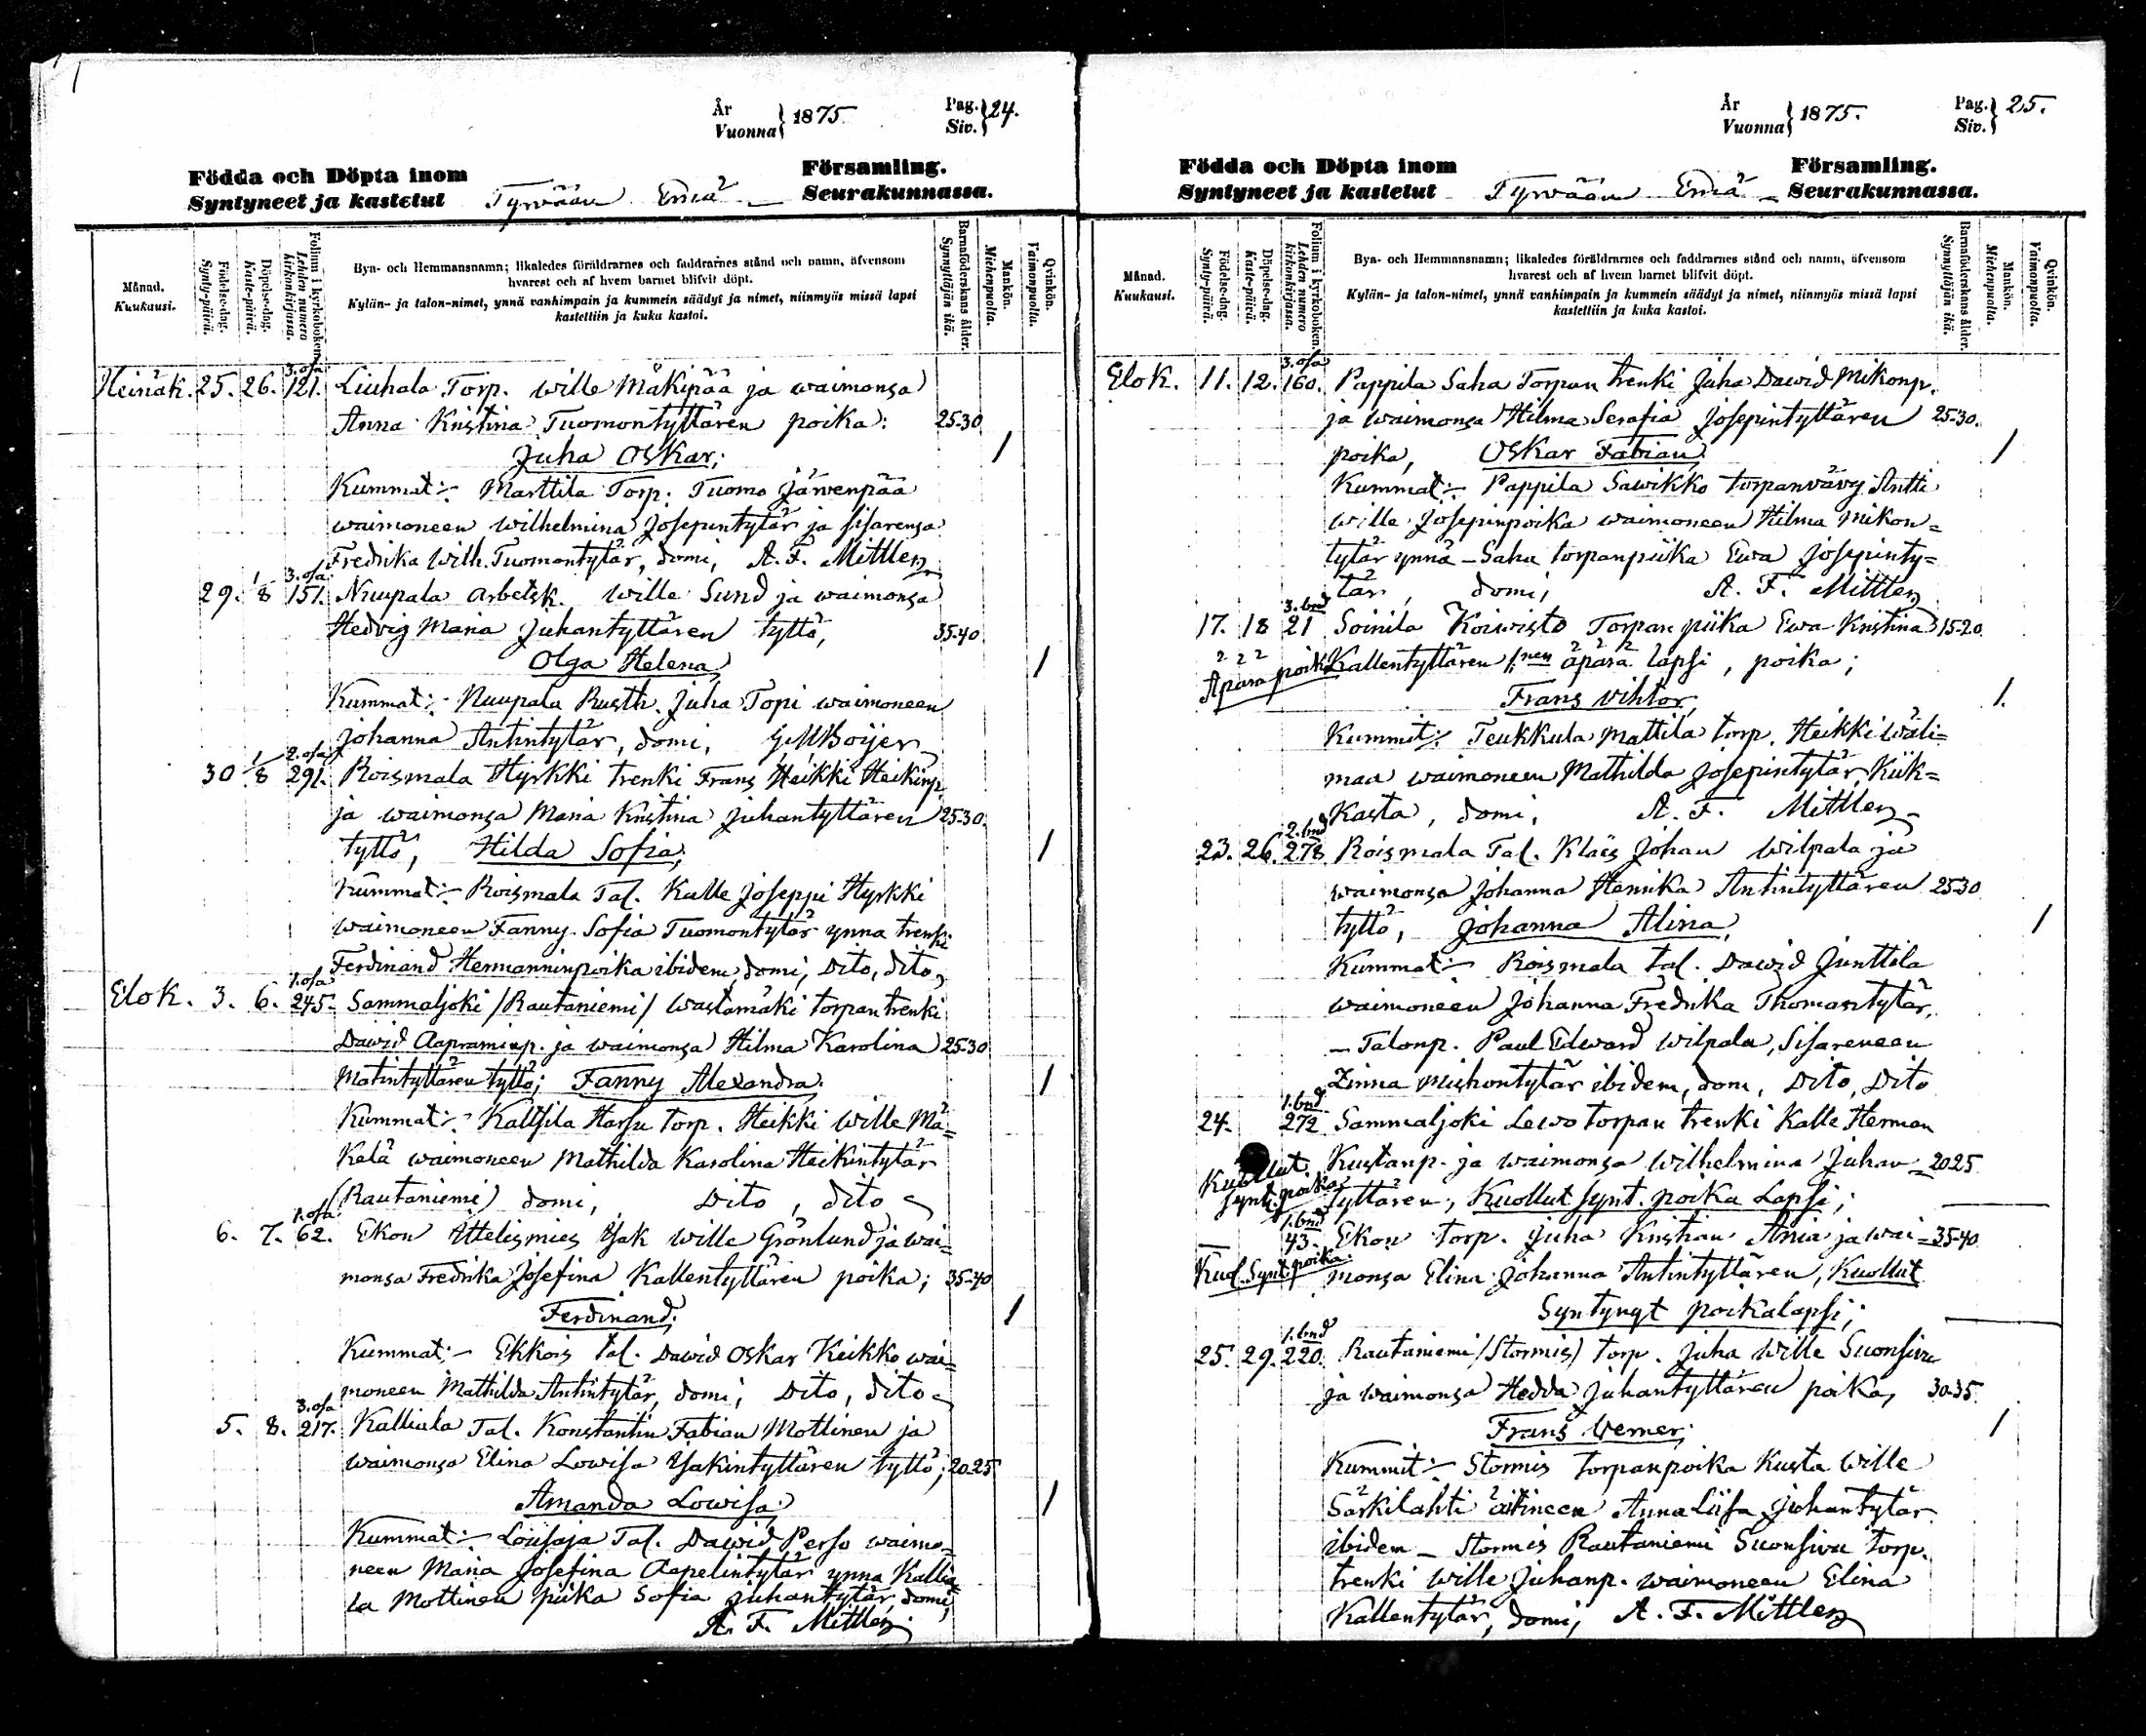 År
Vuonna } 1875.
Pag.
Siv. } 24.
Födda och Döpta inom Församling.
Syntyneet ja kastetut Tyrvään Emä Seurakunnassa.
Månad.
Kuukausi.
Födelse-dag.
Synty-päivä.
Döpelse-dag.
Kaste-päivä.
Folium i kyrkoboken.
Lehden numero
kirkonkirjassa.
Bya- och Hemmansnamn; likaledes föräldrarnes och faddrarnes stånd och namn, äfvensom
hvarest och af hvem barnet blifvit döpt.
Kylän- ja talon-nimet, ynnä vanhimpain ja kummein säädyt ja nimet, niinmyös missä lapsi
kastettiin ja kuka kastoi.
Barnaföderskans ålder.
Synnyttäjän ikä.
Mankön.
Miehenpuolia.
Qvinkön.
Vaimonpuolia.
3. osa
Heinäk. 25. 26. 121. Liuhala Torp. Wille Mäkipää ja waimonsa
Anna Kristina Tuomontyttären poika: 25-30
Juha Oskar; 1
Kummat:- Marttila Torp. Tuomo Järwenpää
waimoneen Wilhelmina Josepintytär ja sisarensa
Fredrika Wilh. Tuomontytär, domi, A. F. Mittler
3. osa
29. 1/8 151. Nuupala arbetsk. Wille Sund ja waimonsa
Hedvig Maria Juhantyttären tyttö, 35-40
Olga Helena, 1
Kummat:- Nuupala Rusth. Juha Topi waimoneen
Johanna Antintytär, domi,
2. osa
30 1/8 291. Roismala Hyrkki trenki Frans Heikki Heikinp.
ja waimonsa Maria Kristina Juhantyttären 25-30.
tyttö, Hilda Sofia; 1
Kummat:- Roismala Tal. Kalle Joseppi Hyrkki
waimoneen Fanny Sofia Tuomontytär ynna trenki
Ferdinand Hermanninpoika ibidem, domi, Dito, dito,
1. osa
Elok. 3. 6. 245. Sammaljoki /Rautaniemi/ Wastamäki torpan trenki
Dawid Aapraminp. ja waimonsa Hilma Karolina 25-30
Matintyttären tyttö; Fanny Alexandra. 1
Kummat:- Kaltsila Harju torp. Heikki Wille Mä=
kelä waimoneen Mathilda Karolina Heikintytär
(Rautaniemi) domi, Dito, dito
1. osa
6. 7. 62. Ekon Ittelismies Isak Wille Grönlund ja wai=
monsa Fredrika Josefina Kallentyttären poika; 35-40
Ferdinand; 1
Kummat:- Ekkois tal. Dawid Oskar Keikko wai=
moneen Mathilda Antintytär, domi, Dito, dito
3. osa
5. 8. 217. Kalliala Tal. Konstantin Fabian Mottinen ja
waimonsa Elina Lowisa Isakintyttären tyttö; 20-25
Amanda Lowisa; 1
Kummat:- Tal. Dawid Perso waimo=
neen Maria Josefina Aapelintytär ynna Kallia=
la Mottinen piika Sofia Juhantytär, domi,
A. F. Mittler
År
Vuonna } 1875.
Pag.
Siv. } 25.
Födda och Döpta inom Församling.
Syntyneet ja kastetut Tyrvään Emä Seurakunnassa.
Månad.
Kuukausi.
Födelse-dag.
Synty-päivä.
Döpelse-dag.
Kaste-päivä.
Folium i kyrkoboken.
Lehden numero
kirkonkirjassa.
Bya- och Hemmansnamn; likaledes föräldrarnes och faddrarnes stånd och namn, äfvensom
hvarest och af hvem barnet blifvit döpt.
Kylän- ja talon-nimet, ynnä vanhimpain ja kummein säädyt ja nimet, niinmyös missä lapsi
kastettiin ja kuka kastoi.
Barnaföderskans ålder.
Synnyttäjän ikä.
Mankön.
Miehenpuolia.
Qvinkön.
Vaimonpuolia.
3. osa
Elok. 11. 12. 160. Pappila Saha Torpan trenki Juha Dawid Mikonp.
ja waimonsa Hilma Serafia Josepintyttären 25-30.
poika, Oskar Fabian, 1
Kummat:- Pappila Sawikko torpanvävy Antti
Wille Josepinpoika waimoneen Hilma Mikon=
tytär ynnä - Saha torpanpiika Ewa Josepinty=
tär, domi, A. F. Mittler
3. bnd
17. 18 21 Soinila Koiwisto Torpan piika Ewa Kristina 15-20
Äpärä poik. Kallentyttären 1:nen äpärä lapsi, poika;
Frans Vihtor, 1.
Kummit:- Teukkula Mattila torp. Heikki Wäli=
maa waimoneen Mathilda Josepintytär Kiik=
kasta, domi, A. F. Mittler
2. bnd
23. 26. 278. Roismala Tal. Klaës Johan Wilpala ja
waimonsa Johanna Henrika Antintyttären 25-30
tyttö, Johanna Alina, 1
Kummat:- Roismala tal. Dawid Junttila
waimoneen Johanna Fredrika Thomantytär,
- Talonp. Paul Edward Wilpala, Sisareneen
Zinna Mishontytär ibidem, dom, Dito, Dito
1. bnd
24. 272 Sammaljoki Lewo torpan trenki Kalle Herman
Kuollut Kustanp. ja waimonsa Wilhelmina Juhan= 20-25
synt. poika tyttären; Kuollut synt. poika Lapsi;
1. bnd
43. Ekon torp. Juha Kristian Ania ja wai= 35-40
Kuol. Synt. poika monsa Elina Johanna Antintyttären, Kuollut
Syntynyt poikalapsi;
1. bnd
25. 29. 220. Rautaniemi /Stormis/ torp. Juha Wille Suonsivu
ja waimonsa Hedda Juhantyttären poika, 30-35
Frans Verner; 1
Kummit:- Stormis torpanpoika Kusta Wille
Särkilahti äitineen Anna Liisa Juhantytär
ibidem - Stormis Rautaniemi Suonsivu torp.
trenki Wille Juhanp. waimoneen Elina
Kallentytär, domi, A. F. Mittler